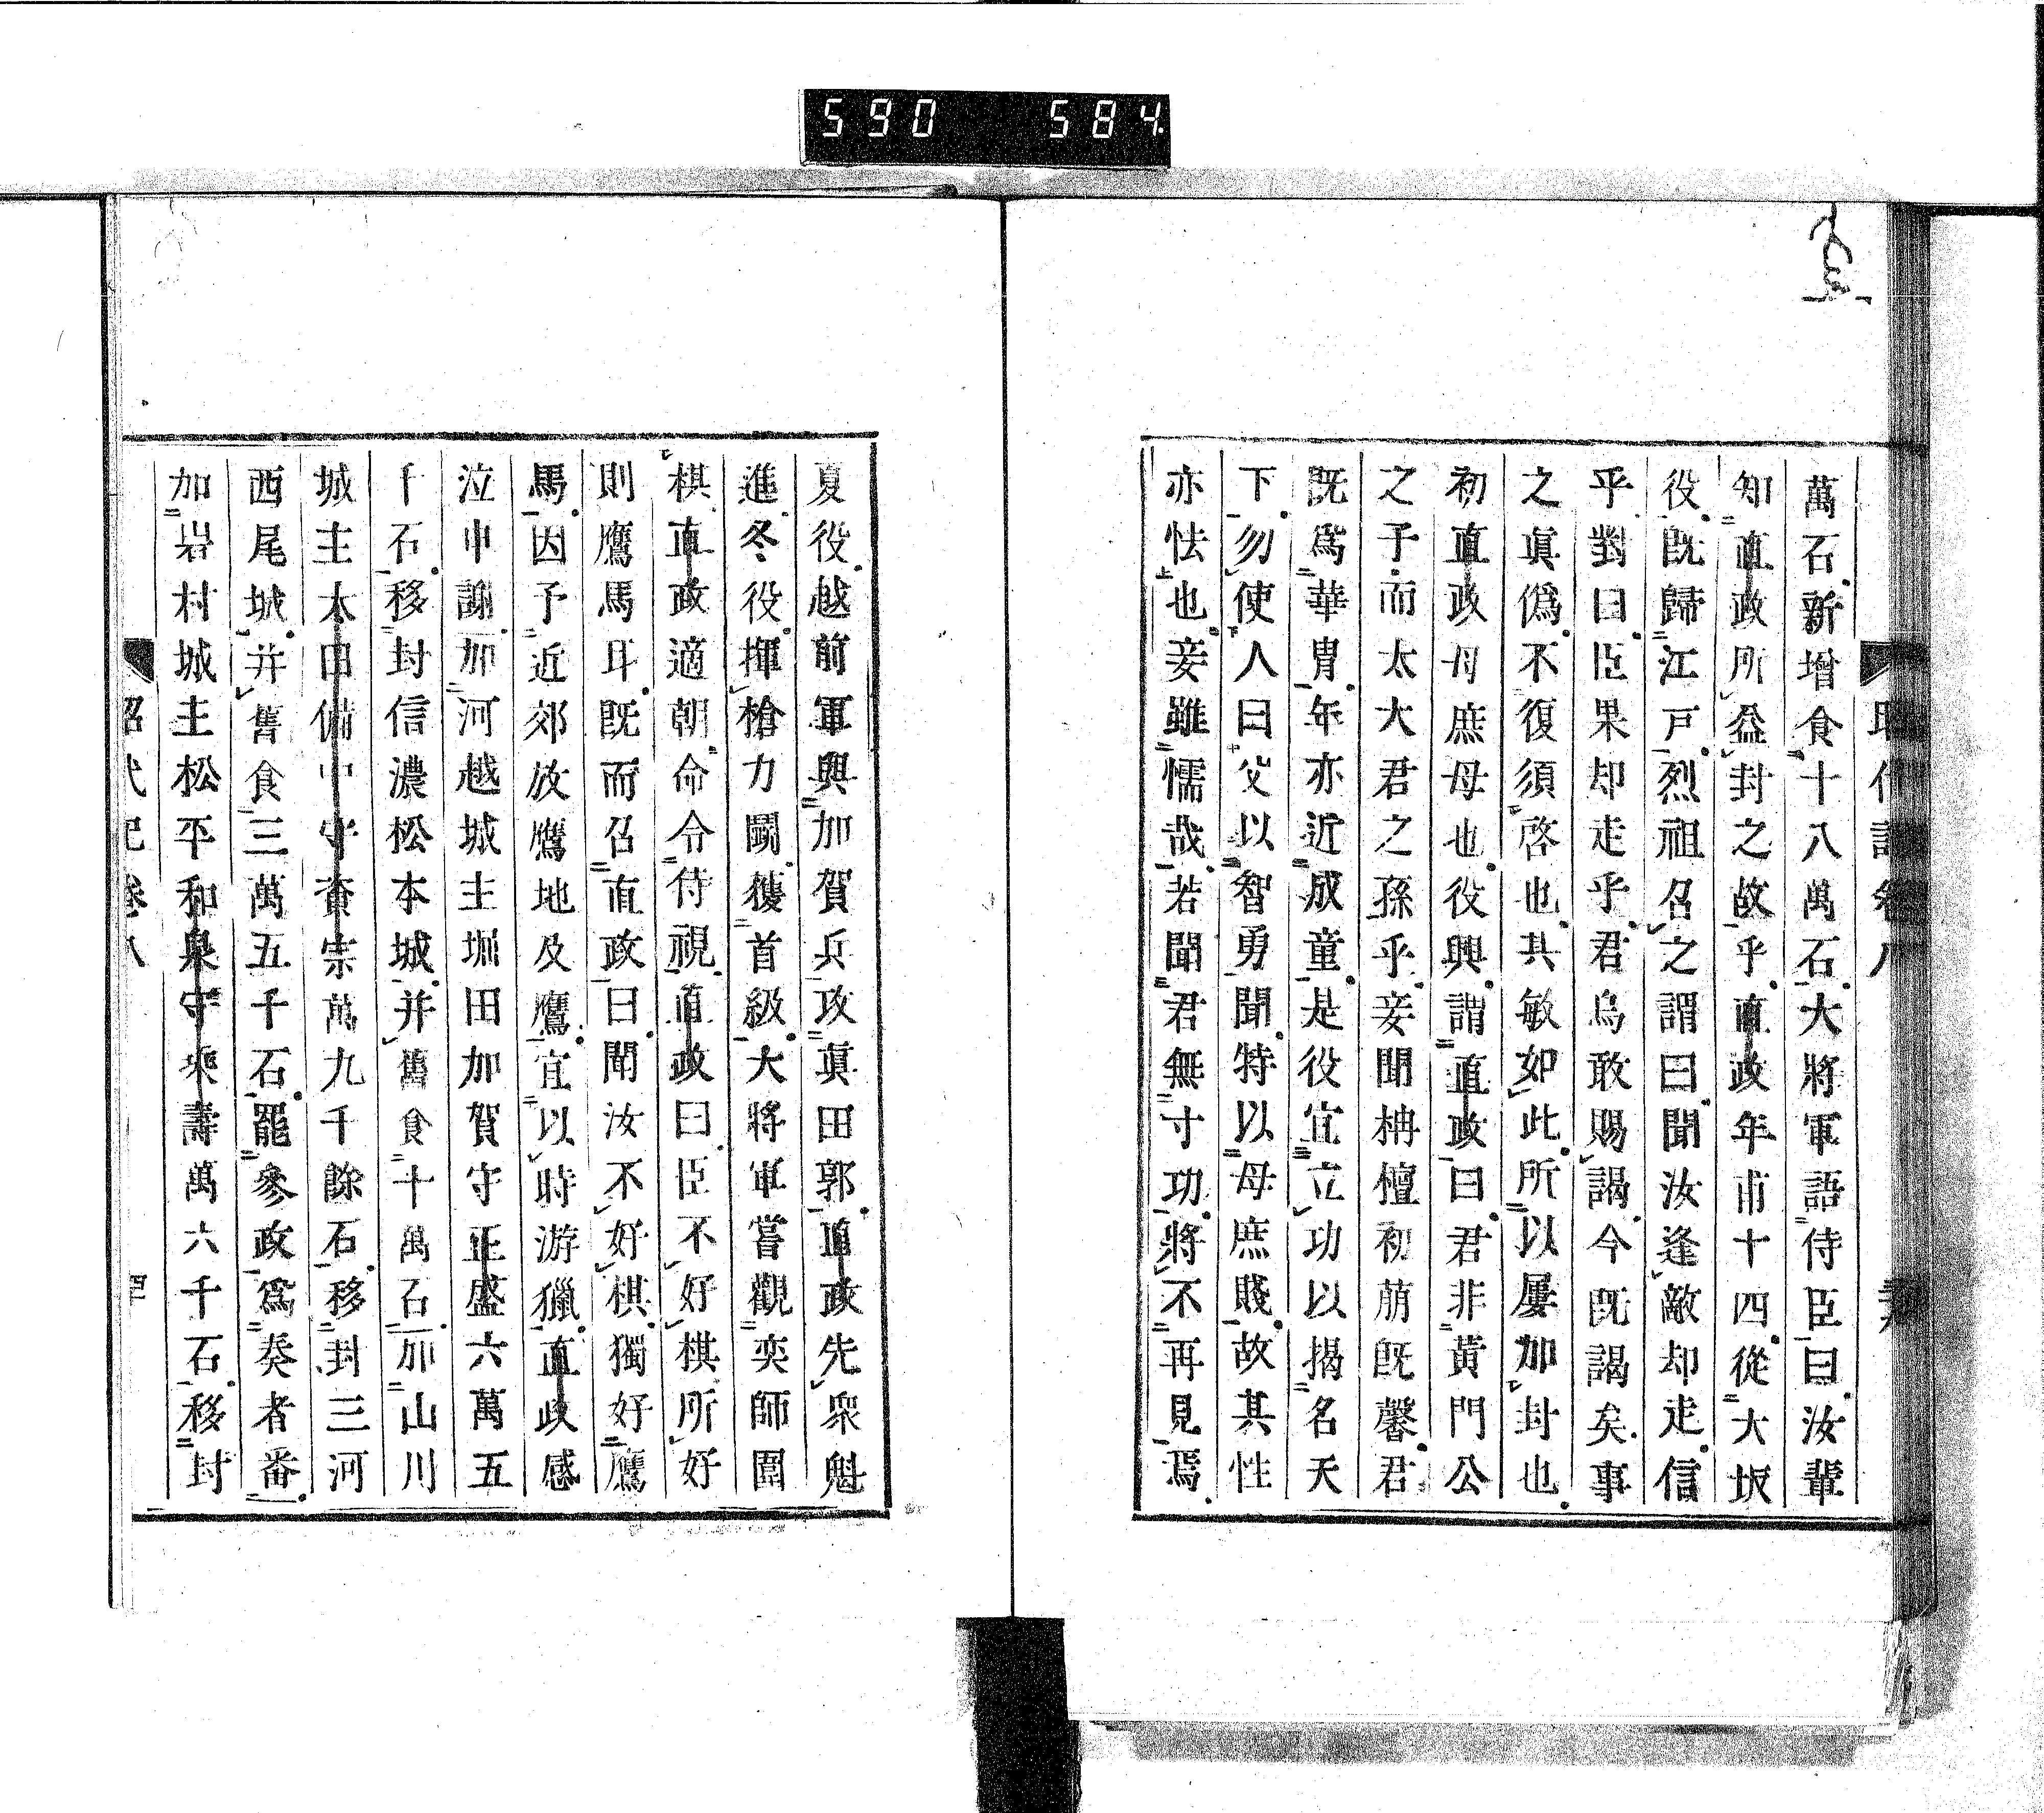 590 584
萬石新增食十八萬石大將軍語侍臣曰汝輩
知直政所益封之故乎直政年甫十四從大坂
役既歸江戸烈祖召之謂曰聞汝逢敵却走信
乎對曰臣果却走乎君烏敢賜謁今既謁矣事
之眞僞不復須啓也其敏如此所以屢加封也
初直政母庶母也役興謂直政曰君非黄門公
之子而太大君之孫乎妾聞栴檀初萠既馨君
既爲華胄年亦近成童是役宜立功以揭名天
下勿使人曰父以智勇聞特以母庶賤故其性
亦怯也妾雖懦哉若聞君無寸功將不再見焉
夏役越前軍興加賀兵攻眞田郭直政先衆魁
進冬役揮槍力鬪獲首級大將軍嘗觀奕師圍
棋直政適朝命令侍視直政曰臣不好棋所好
則鷹馬耳既而召直政曰聞汝不好棋獨好鷹
馬因予近郊放鷹地及鷹宜以時游獵直政感
泣申謝加河越城主堀田加賀守正盛六萬五
千石移封信濃松本城并舊食十萬石加山川
城主太田備中守資宗萬九千餘石移封三河
西尾城并舊食三萬五千石罷參政爲奏者番
加岩村城主松平和泉守乘壽萬六千石移封
昭代記卷八